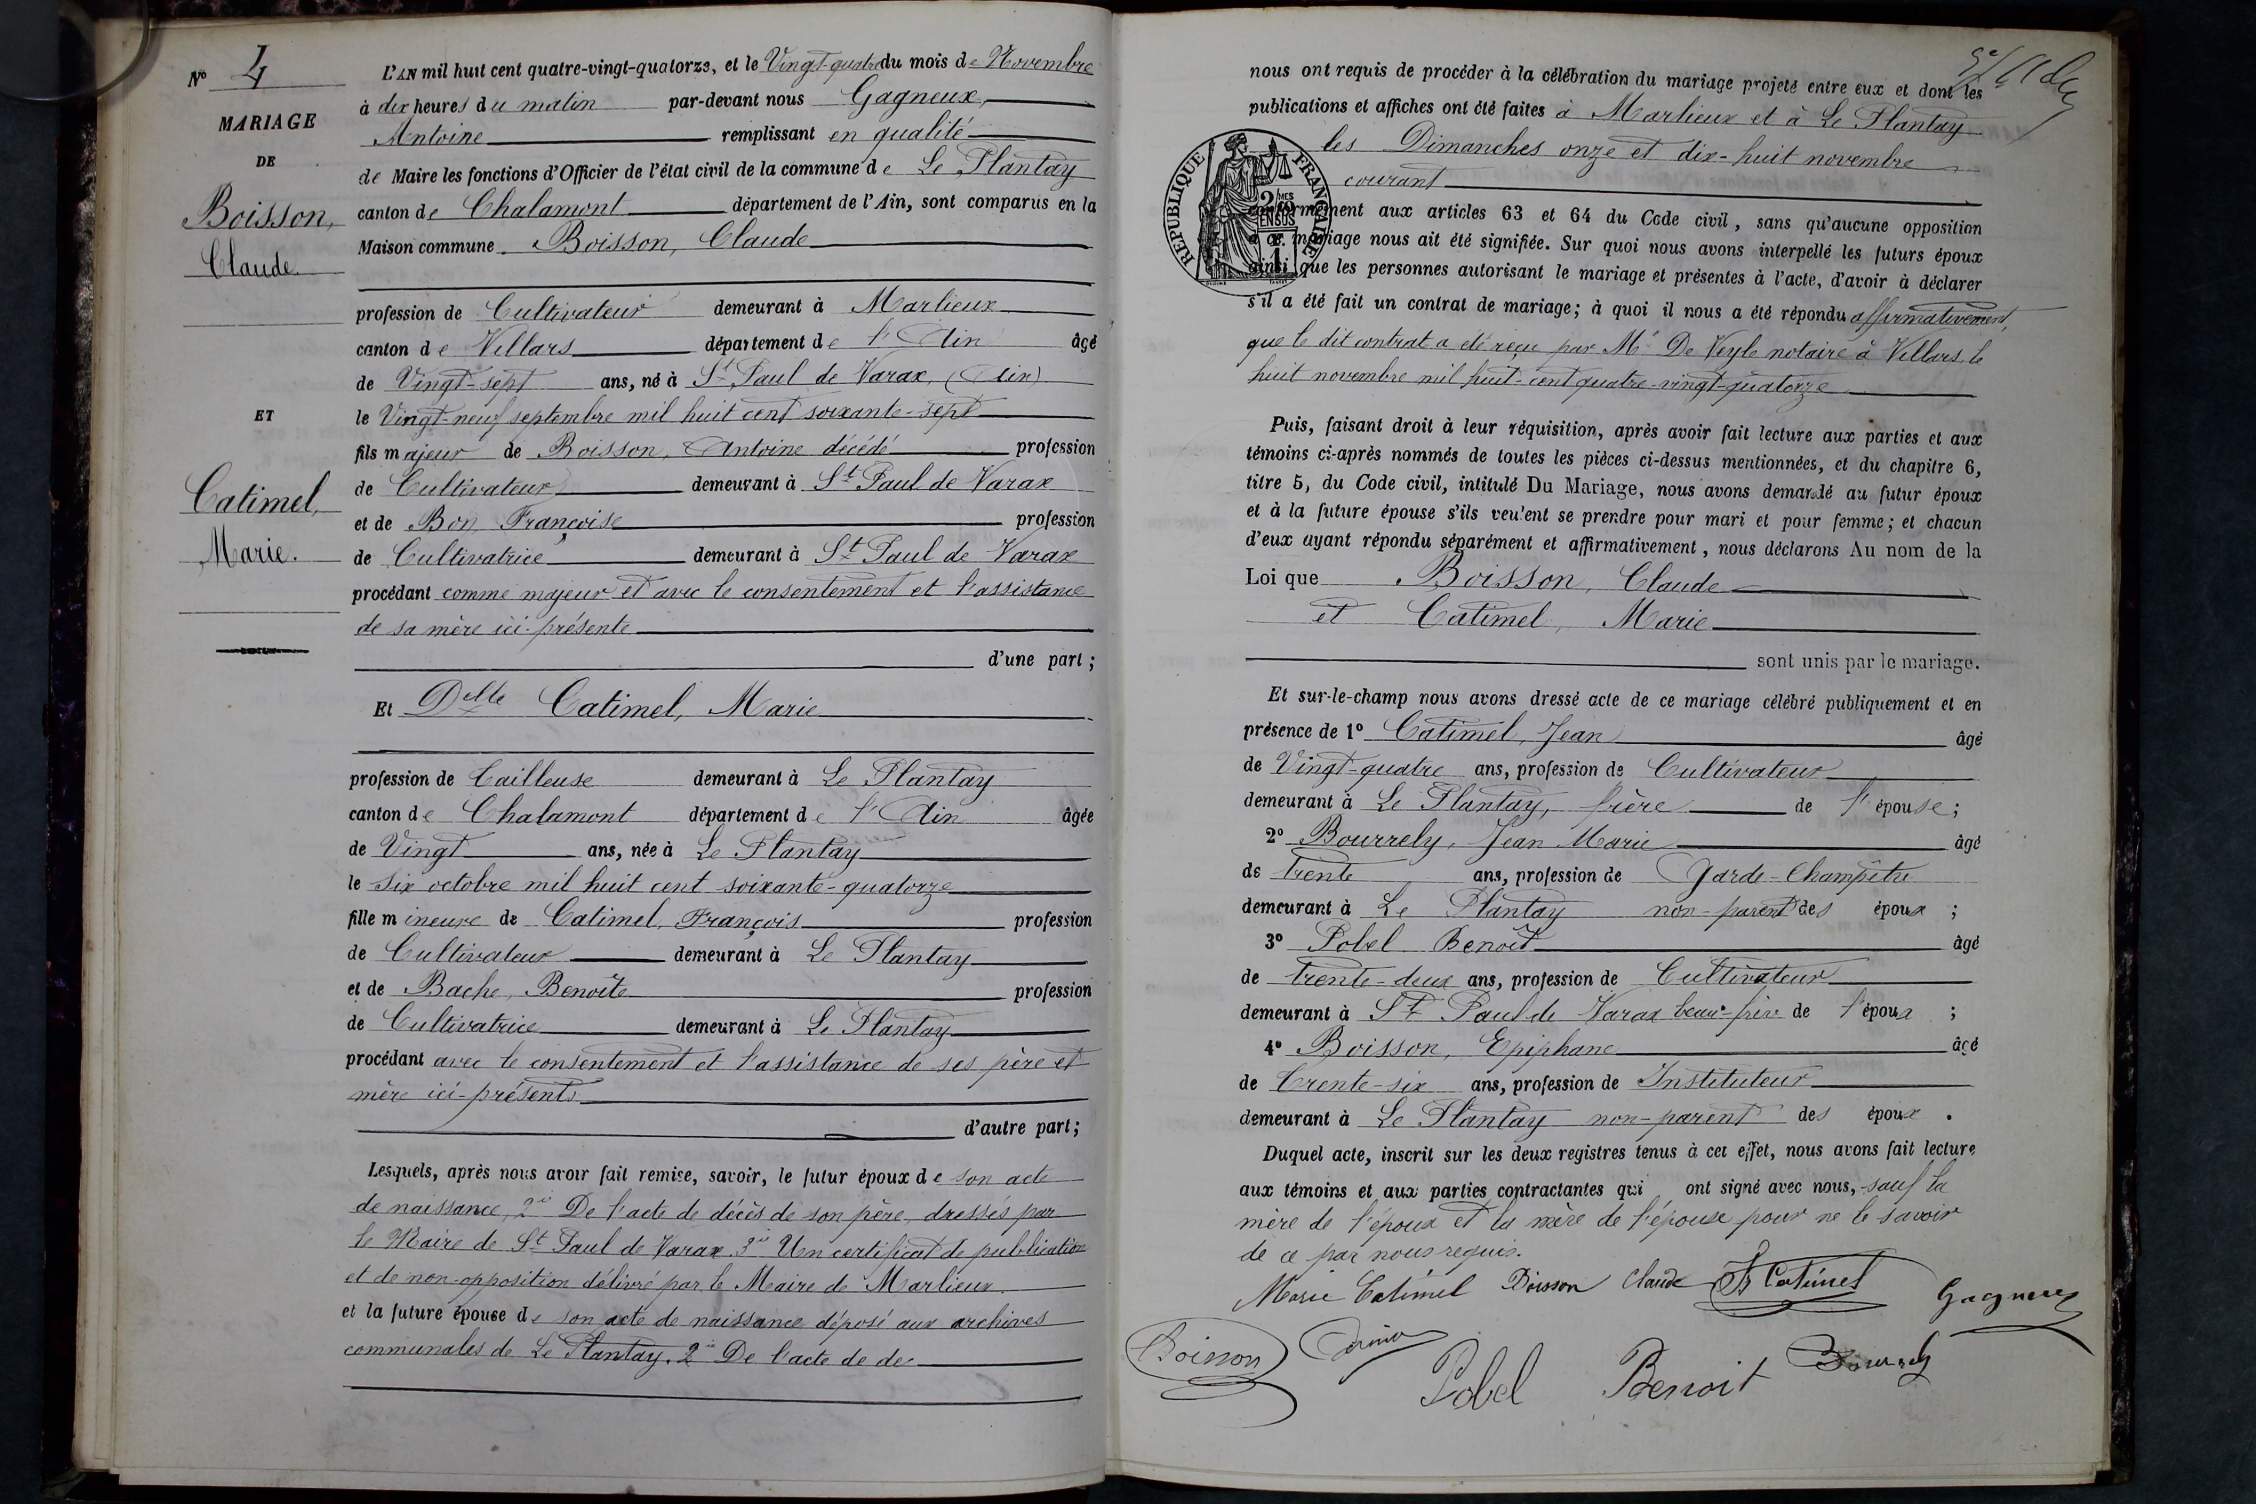 N° 4
MARIAGE
DE
Boisson,
Claude.
ET
Catimel,
Marie.
L'AN mil huit cent quatre-vingt-quatorze, et le Vingt-quatre du mois de Novembre
à dix heures du matin par-devant nous Gagneux,
Antoine remplissant en qualité
de Maire les fonctions d'Officier de l'état civil de la commune de Le Plantay
canton de Chalamont département de l'Ain, sont comparus en la
Maison commune Boisson, Claude
profession de Cultivateur demeurant à Marlieux
canton de Villars département de l'Ain âgé
de Vingt-sept ans, né à St Paul de Varax, (Ain)
le Vingt-neuf septembre mil huit cent soixante-sept
fils majeur de Boisson, Antoine décédé profession
de Cultivateur demeurant à St Paul de Varax
et de Bon Françoise profession
de Cultivatrice demeurant à St Paul de Varax
procédant comme majeur et avec le consentement et l'assistance
de sa mère ici-présente
d'une part;
Et Delle Catimel, Marie
profession de Tailleuse demeurant à Le Plantay
canton de Chalamont département de l'Ain âgée
de Vingt ans, née à Le Plantay
le six octobre mil huit cent soixante-quatorze
fille mineure de Catimel, François profession
de Cultivateur demeurant à Le Plantay
et de Bache, Benoîte profession
de Cultivatrice demeurant à Le Plantay
procédant avec le consentement et l'assistance de ses père et
mère ici-présents
d'autre part;
Lesquels, après nous avoir fait remise, savoir, le futur époux de son acte
de naissance, 2° De l'acte de décès de son père, dressés par
le Maire de St Paul de Varax. 3° Un certificat de publication
et de non-opposition délivré par le Maire de Marlieux.
et la future épouse de son acte de naissance déposé aux archives
communales de Le Plantay. 2° De l'acte de de
nous ont requis de procéder à la célébration du mariage projeté entre eux et dont les
publications et affiches ont été faites à Marlieux et à Le Plantay
les Dimanches onze et dix-huit novembre
courant
RÉPUBLIQUE FRANÇAISE
2/10mes
EN SUS
1F.
conformément aux articles 63 et 64 du Code civil, sans qu'aucune opposition
à ce mariage nous ait été signifiée. Sur quoi nous avons interpellé les futurs époux
ainsi que les personnes autorisant le mariage et présentes à l'acte, d'avoir à déclarer
s'il a été fait un contrat de mariage; à quoi il nous a été répondu affirmativement,
que le dit contrat a été reçu par Me De Veyle notaire à Villars le
huit novembre mil huit-cent quatre-vingt-quatorze
Puis, faisant droit à leur réquisition, après avoir fait lecture aux parties et aux
témoins ci-après nommés de toutes les pièces ci-dessus mentionnées, et du chapitre 6,
titre 5, du Code civil, intitulé Du Mariage, nous avons demandé au futur époux
et à la future épouse s'ils veulent se prendre pour mari et pour femme; et chacun
d'eux ayant répondu séparément et affirmativement, nous déclarons Au nom de la
Loi que Boisson, Claude
et Catimel, Marie
sont unis par le mariage.
Et sur-le-champ nous avons dressé acte de ce mariage célébré publiquement et en
présence de 1° Catimel, Jean âgé
de Vingt-quatre ans, profession de Cultivateur
demeurant à Le Plantay, frère de l'épouse;
2° Bourrely, Jean Marie âgé
de trente ans, profession de Garde-Champêtre
demeurant à Le Plantay non-parent des époux;
3° Pobel Benoît âgé
de trente-deux ans, profession de Cultivateur
demeurant à St Paul de Varax beau-frère de l'époux;
4° Boisson, Epiphane âgé
de Trente-six ans, profession de Instituteur
demeurant à Le Plantay non-parent des époux.
Duquel acte, inscrit sur les deux registres tenus à cet effet, nous avons fait lecture
aux témoins et aux parties contractantes qui ont signé avec nous, sauf la
mère de l'époux et la mère de l'épouse pour ne le savoir
de ce par nous requis.
Marie Catimel Boisson Claude Catimel Gagneux
Boisson
Pobel Benoit Bourrely